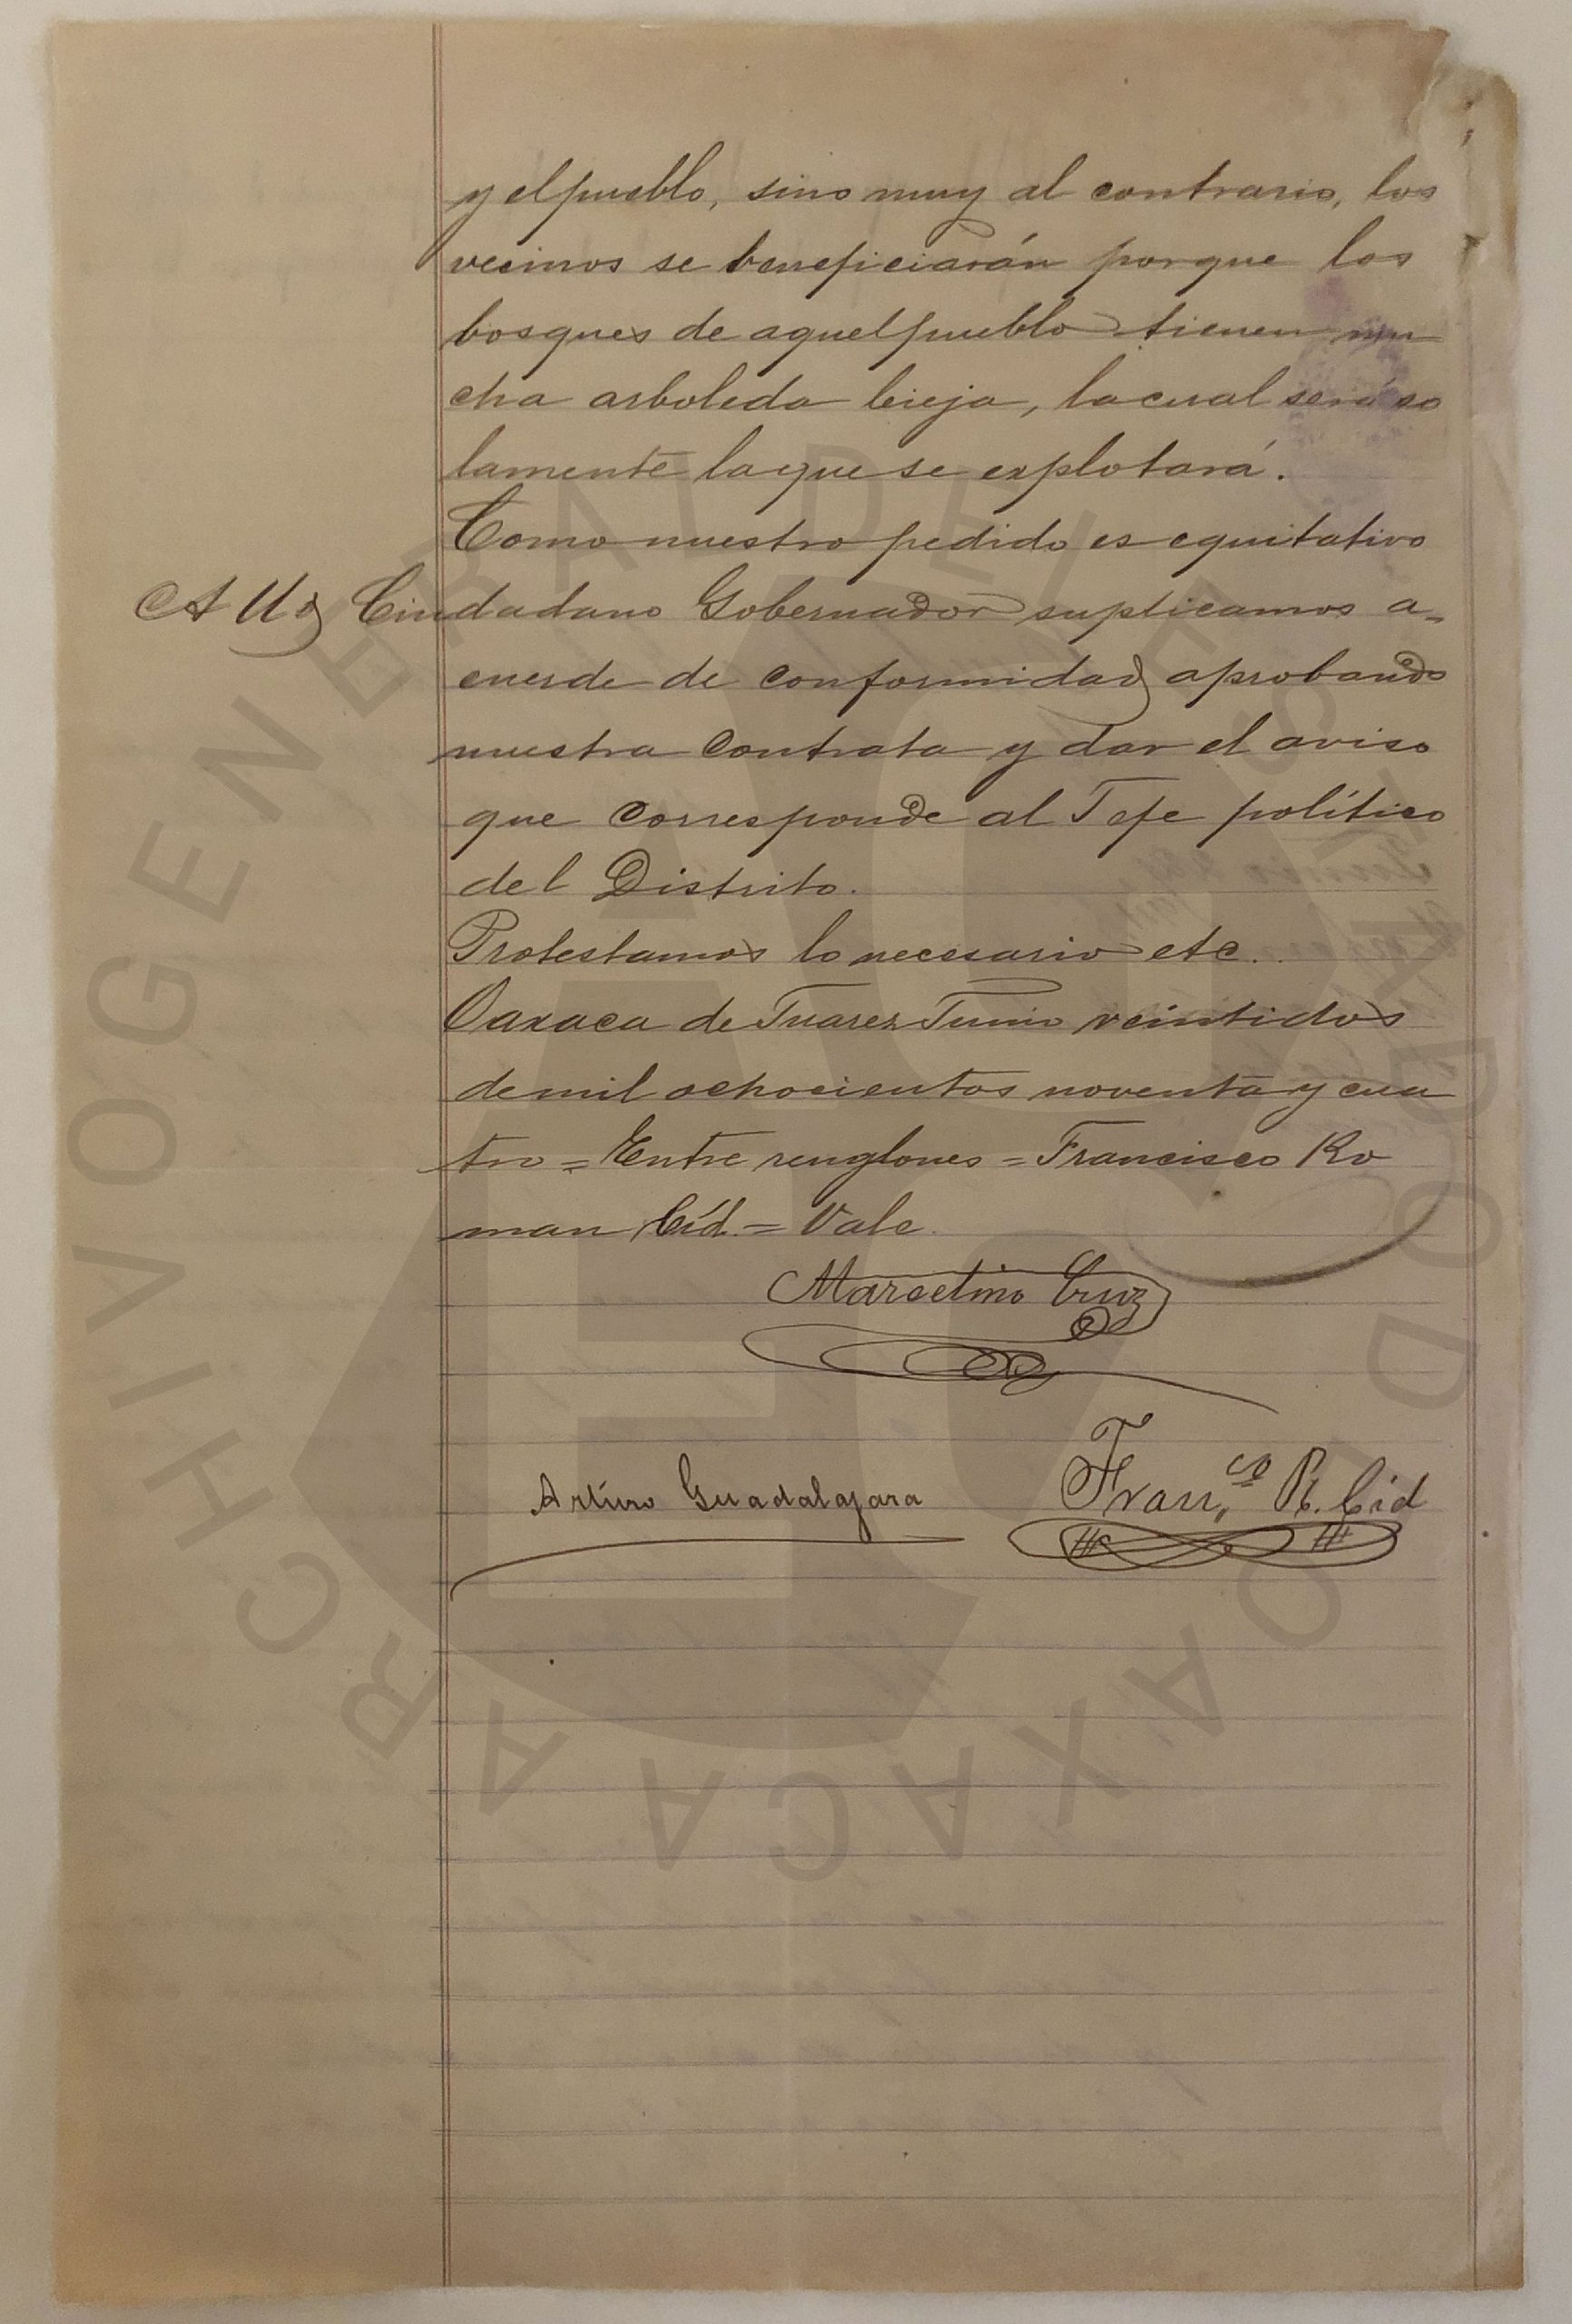 y el pueblo, sino muy al contrario, los
vecinos se beneficiarán porque los
bosques de aquel pueblo tienen mu
cha arboleda bieja, la cual será so
lamente la que se explotará.
Como nuestro pedido es equitativo
A Ud Ciudadano Gobernador suplicamos a-
cuerde de conformidad aprobando
nuestra contrata y dar el aviso
que corresponde al Jefe político
del Distrito.
Protestamos lo necesario etc.
Oaxaca de Juarez Junio veintidos
de mil ochocientos noventa y cua
tro = Entre renglones = Francisco Ro
man Cid. = Vale
Marcelino Cruz
Arturo Guadalajara Fran,co R. Cid
ARCHIVO GENERAL DEL ESTADO DE OAXACA